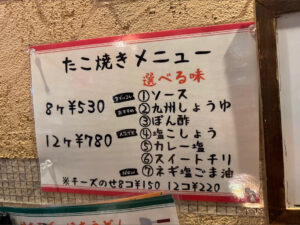 たこ焼きメニュー
選べる味
8ヶ¥530
12ヶ¥780
①ソース
おすすめ ②九州しょうゆ
③ぽん酢
④塩こしょう
⑤カレー塩
⑥スイートチリ
NEW ⑦ネギ塩ごま油
※チーズのせ8コ¥150 12コ¥220